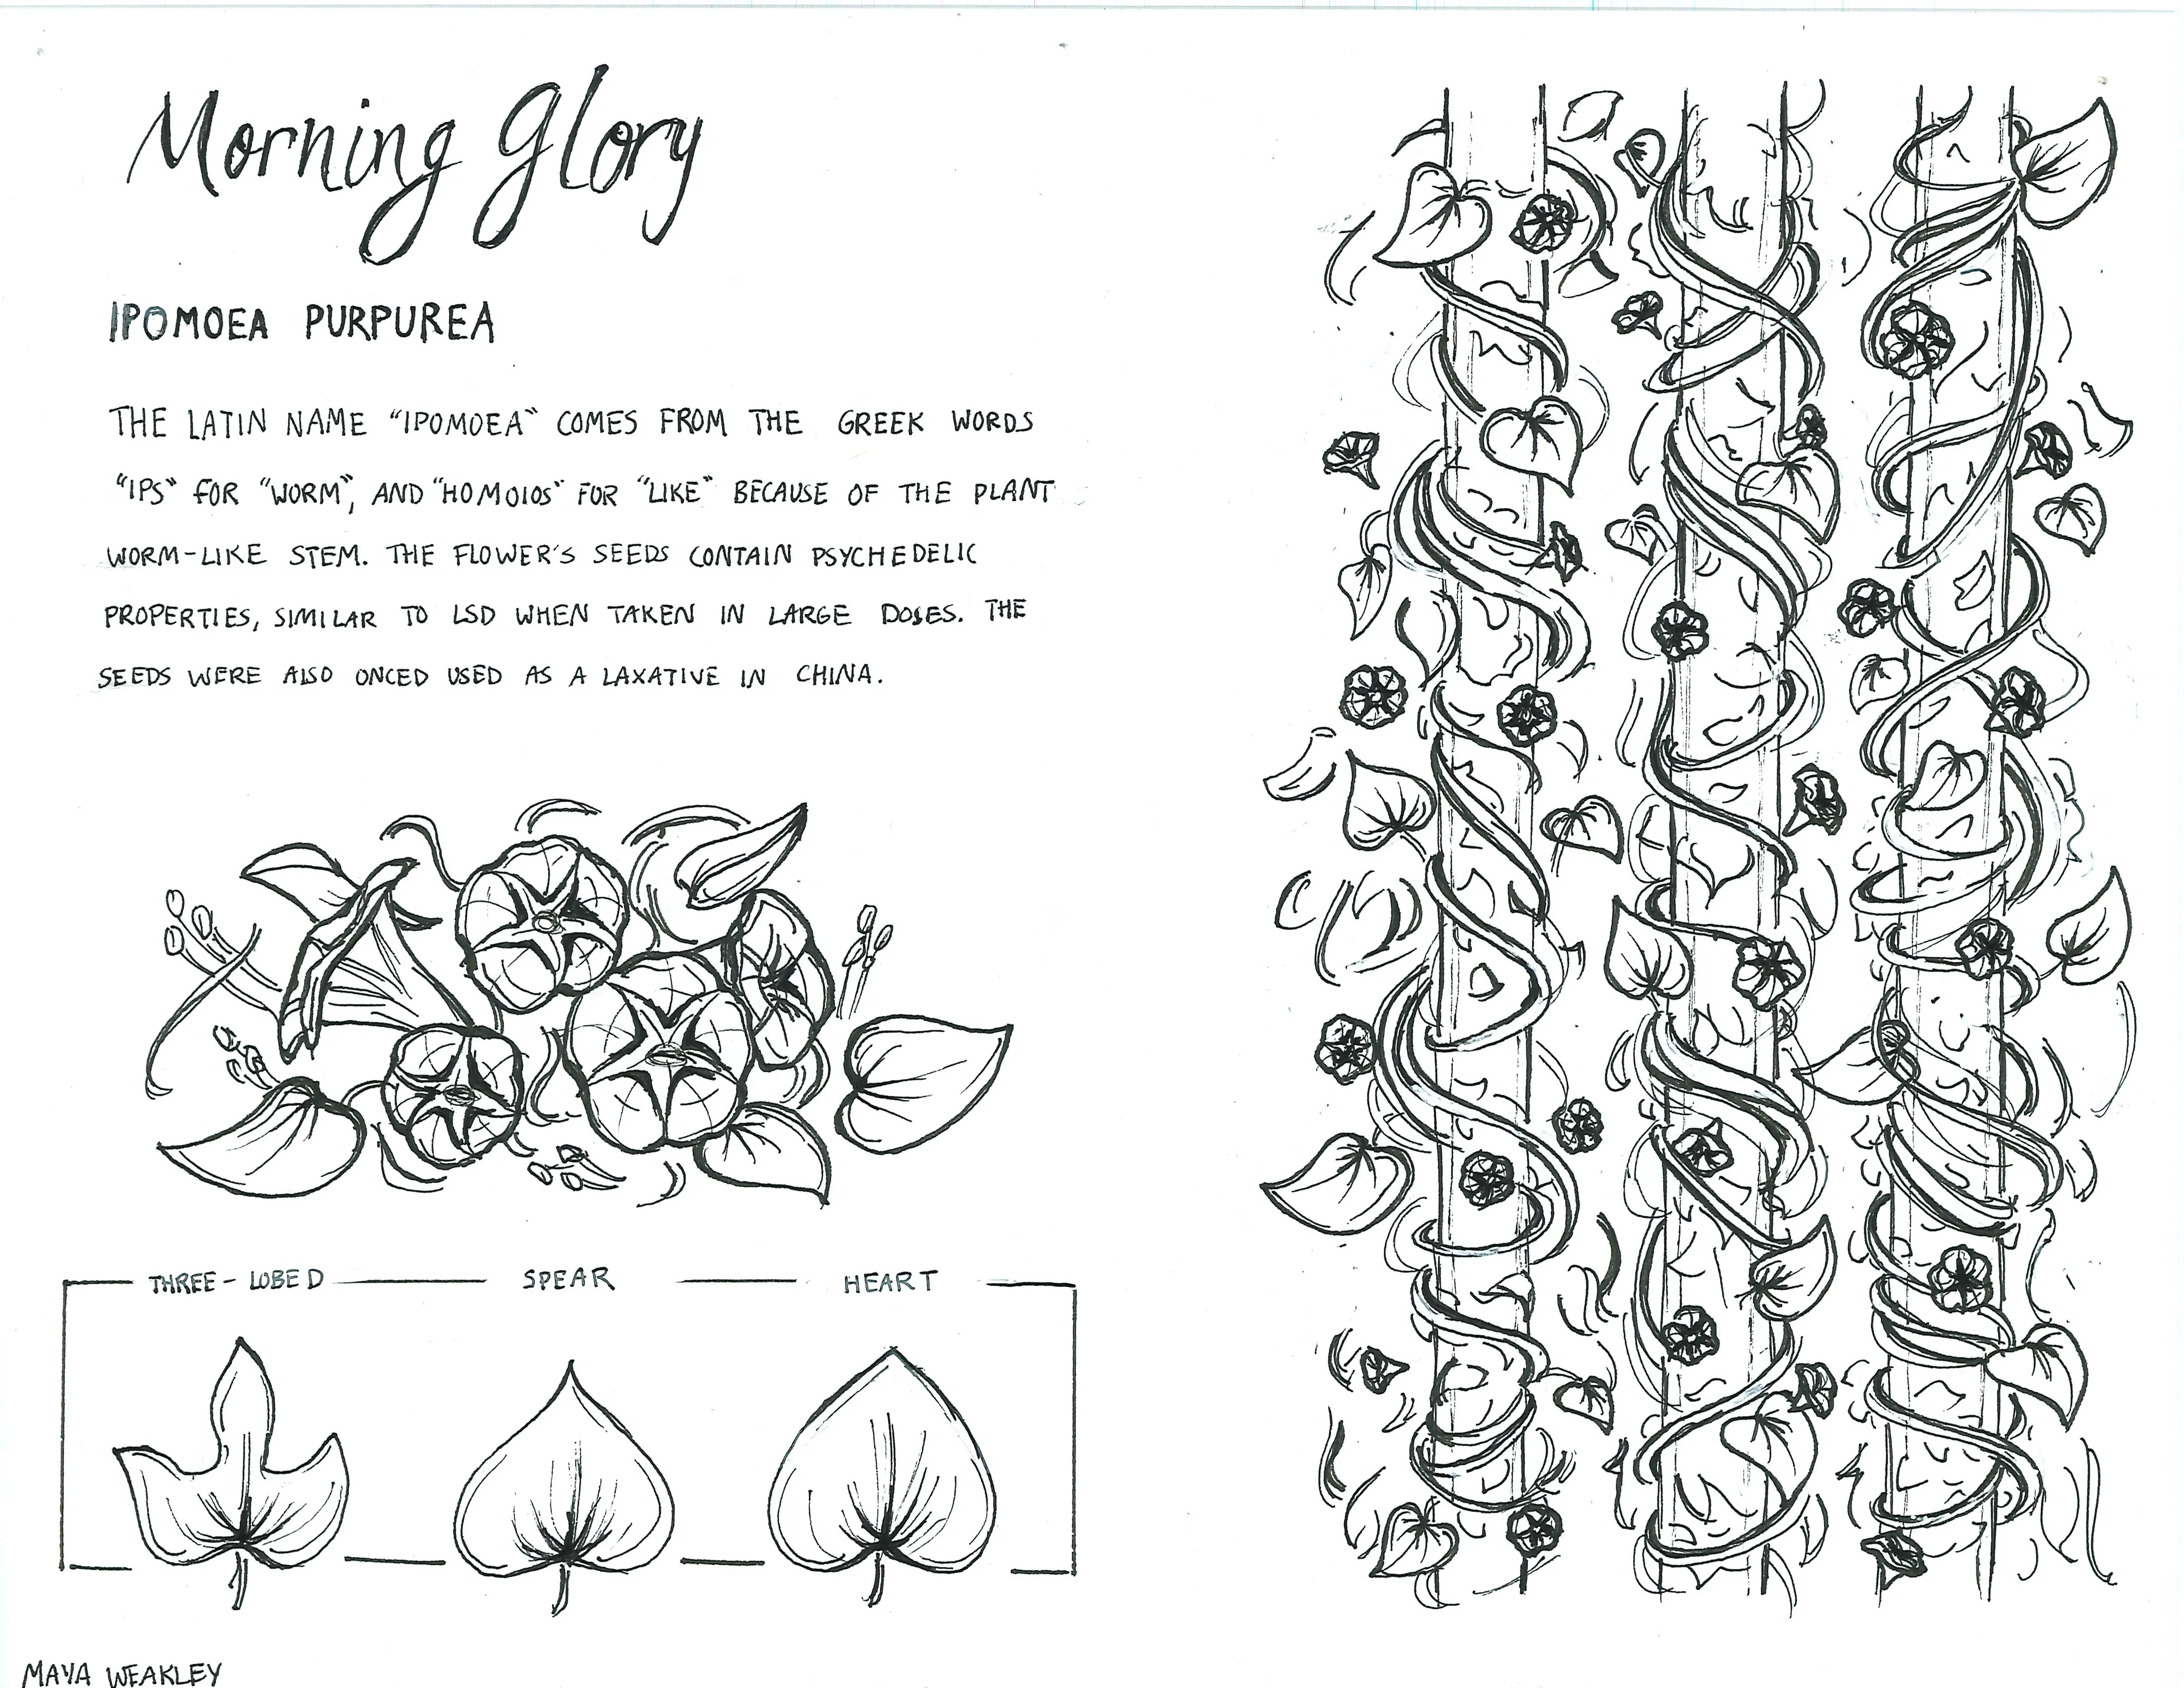 Morning Glory
IPOMOEA PURPUREA
THE LATIN NAME "IPOMOEA" COMES FROM THE GREEK WORDS
"IPS" FOR "WORM", AND "HOMOIOS" FOR "LIKE" BECAUSE OF THE PLANT
WORM-LIKE STEM. THE FLOWER'S SEEDS CONTAIN PSYCHEDELIC
PROPERTIES, SIMILAR TO LSD WHEN TAKEN IN LARGE DOSES. THE
SEEDS WERE ALSO ONCED USED AS A LAXATIVE IN CHINA.
THREE-LOBED SPEAR HEART
MAYA WEAKLEY